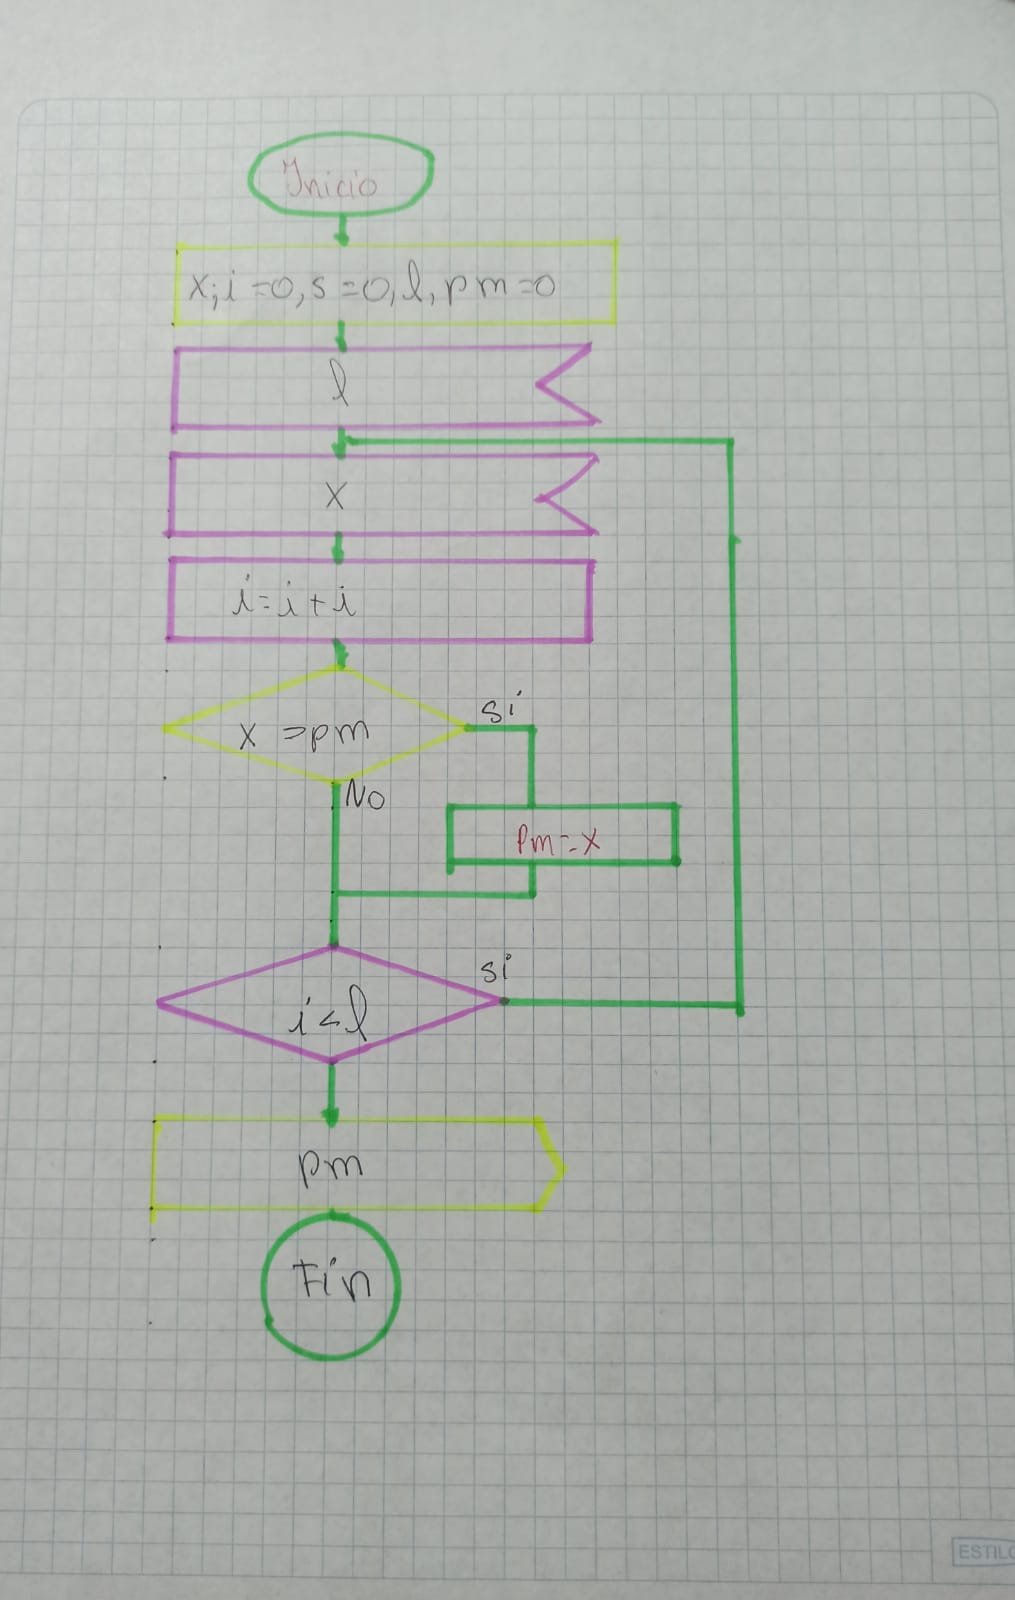 Inicio
x, i=0, s=0, l, pm=0
l
x
i=i+i
x >pm
si
No
Pm=x
si
i<l
pm
Fin
ESTILO